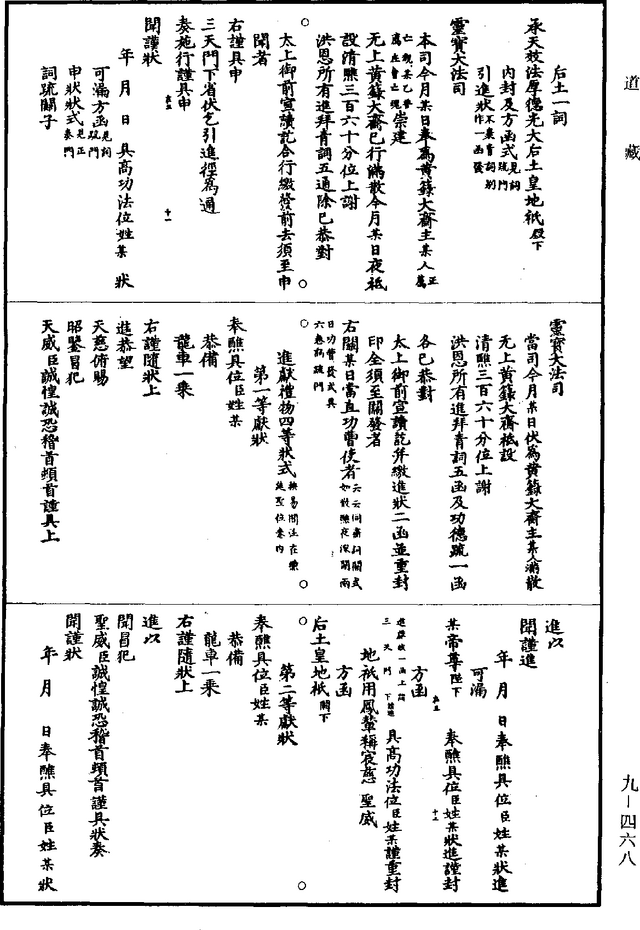 道藏
后土一詞
承天效法厚德光大后土皇地祇殿下
內封及方函式見詞疏門
引進狀不裹青詞別作一函發
靈寶大法司
本司今月某日奉為黃籙大齋主某人薦正
亡親某乙魂
崇建
无上黃籙大齋已行滿散今月某日夜祗
設清醮三百六十分位上謝
洪恩所有進拜青詞五通除已恭對
太上御前宣讀訖合行繳發前去須至申
聞者
右謹具申
三天門下省伏乞引進徑為通
奏施行謹具申
聞謹狀
年月日具高功法位姓某狀
可漏方函見詞疏門
申狀狀式見正奏門
詞疏關子
靈寶大法司
當司今月某日伏為黃籙大齋主某人滿散
无上黃籙大齋祗設
清醮三百六十分位上謝
洪恩所有進拜青詞五函及功德疏一函
各已恭對
太上御前宣讀訖并繳進狀二函並重封
印全須至關發者
右關某日當直功曹使者云云同齋詞關式如散醮夜深關兩
日功曹發式具六卷詞疏門
進獻禮物四等狀式
第一等獻狀
奉醮具位臣姓某
恭備
龍車一乘
右謹隨狀上
進恭望
天慈俯賜
昭鑒冒犯
天威臣誠惶誠恐稽首頓首謹具上
進以
聞謹進
年月日奉醮具位臣姓某狀進
可漏
某帝尊陛下
奉醮具位臣姓某狀進謹封
方函
進獻狀一函上詣三天門下
具高功法位臣姓某謹重封
地祇用鳳輦稱宸慈聖威
后土皇地祇闕下
方函
第二等獻狀
奉醮具位臣姓某
恭備
龍車一乘
右謹隨狀上
進以
聞冒犯
聖威臣誠惶誠恐稽首頓首謹具狀奏
聞謹狀
年月日奉醮具位臣姓某狀
九－四六八